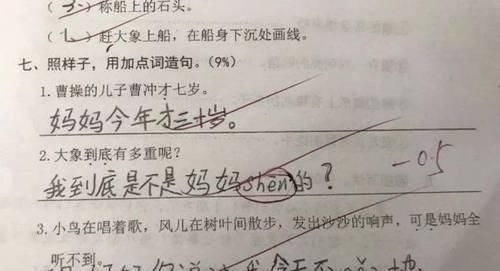 ( 3 )称船上的石头。
( 1 )赶大象上船，在船身下沉处画线。
七、照样子，用加点词造句。(9%)
1.曹操的儿子曹冲才七岁。
妈妈今年才三十岁。
2.大象到底有多重呢？
我到底是不是妈妈shēn的？
-0.5
3.小鸟在唱着歌，风儿在树叶间散步，发出沙沙的响声，可是妈妈全
听不到。